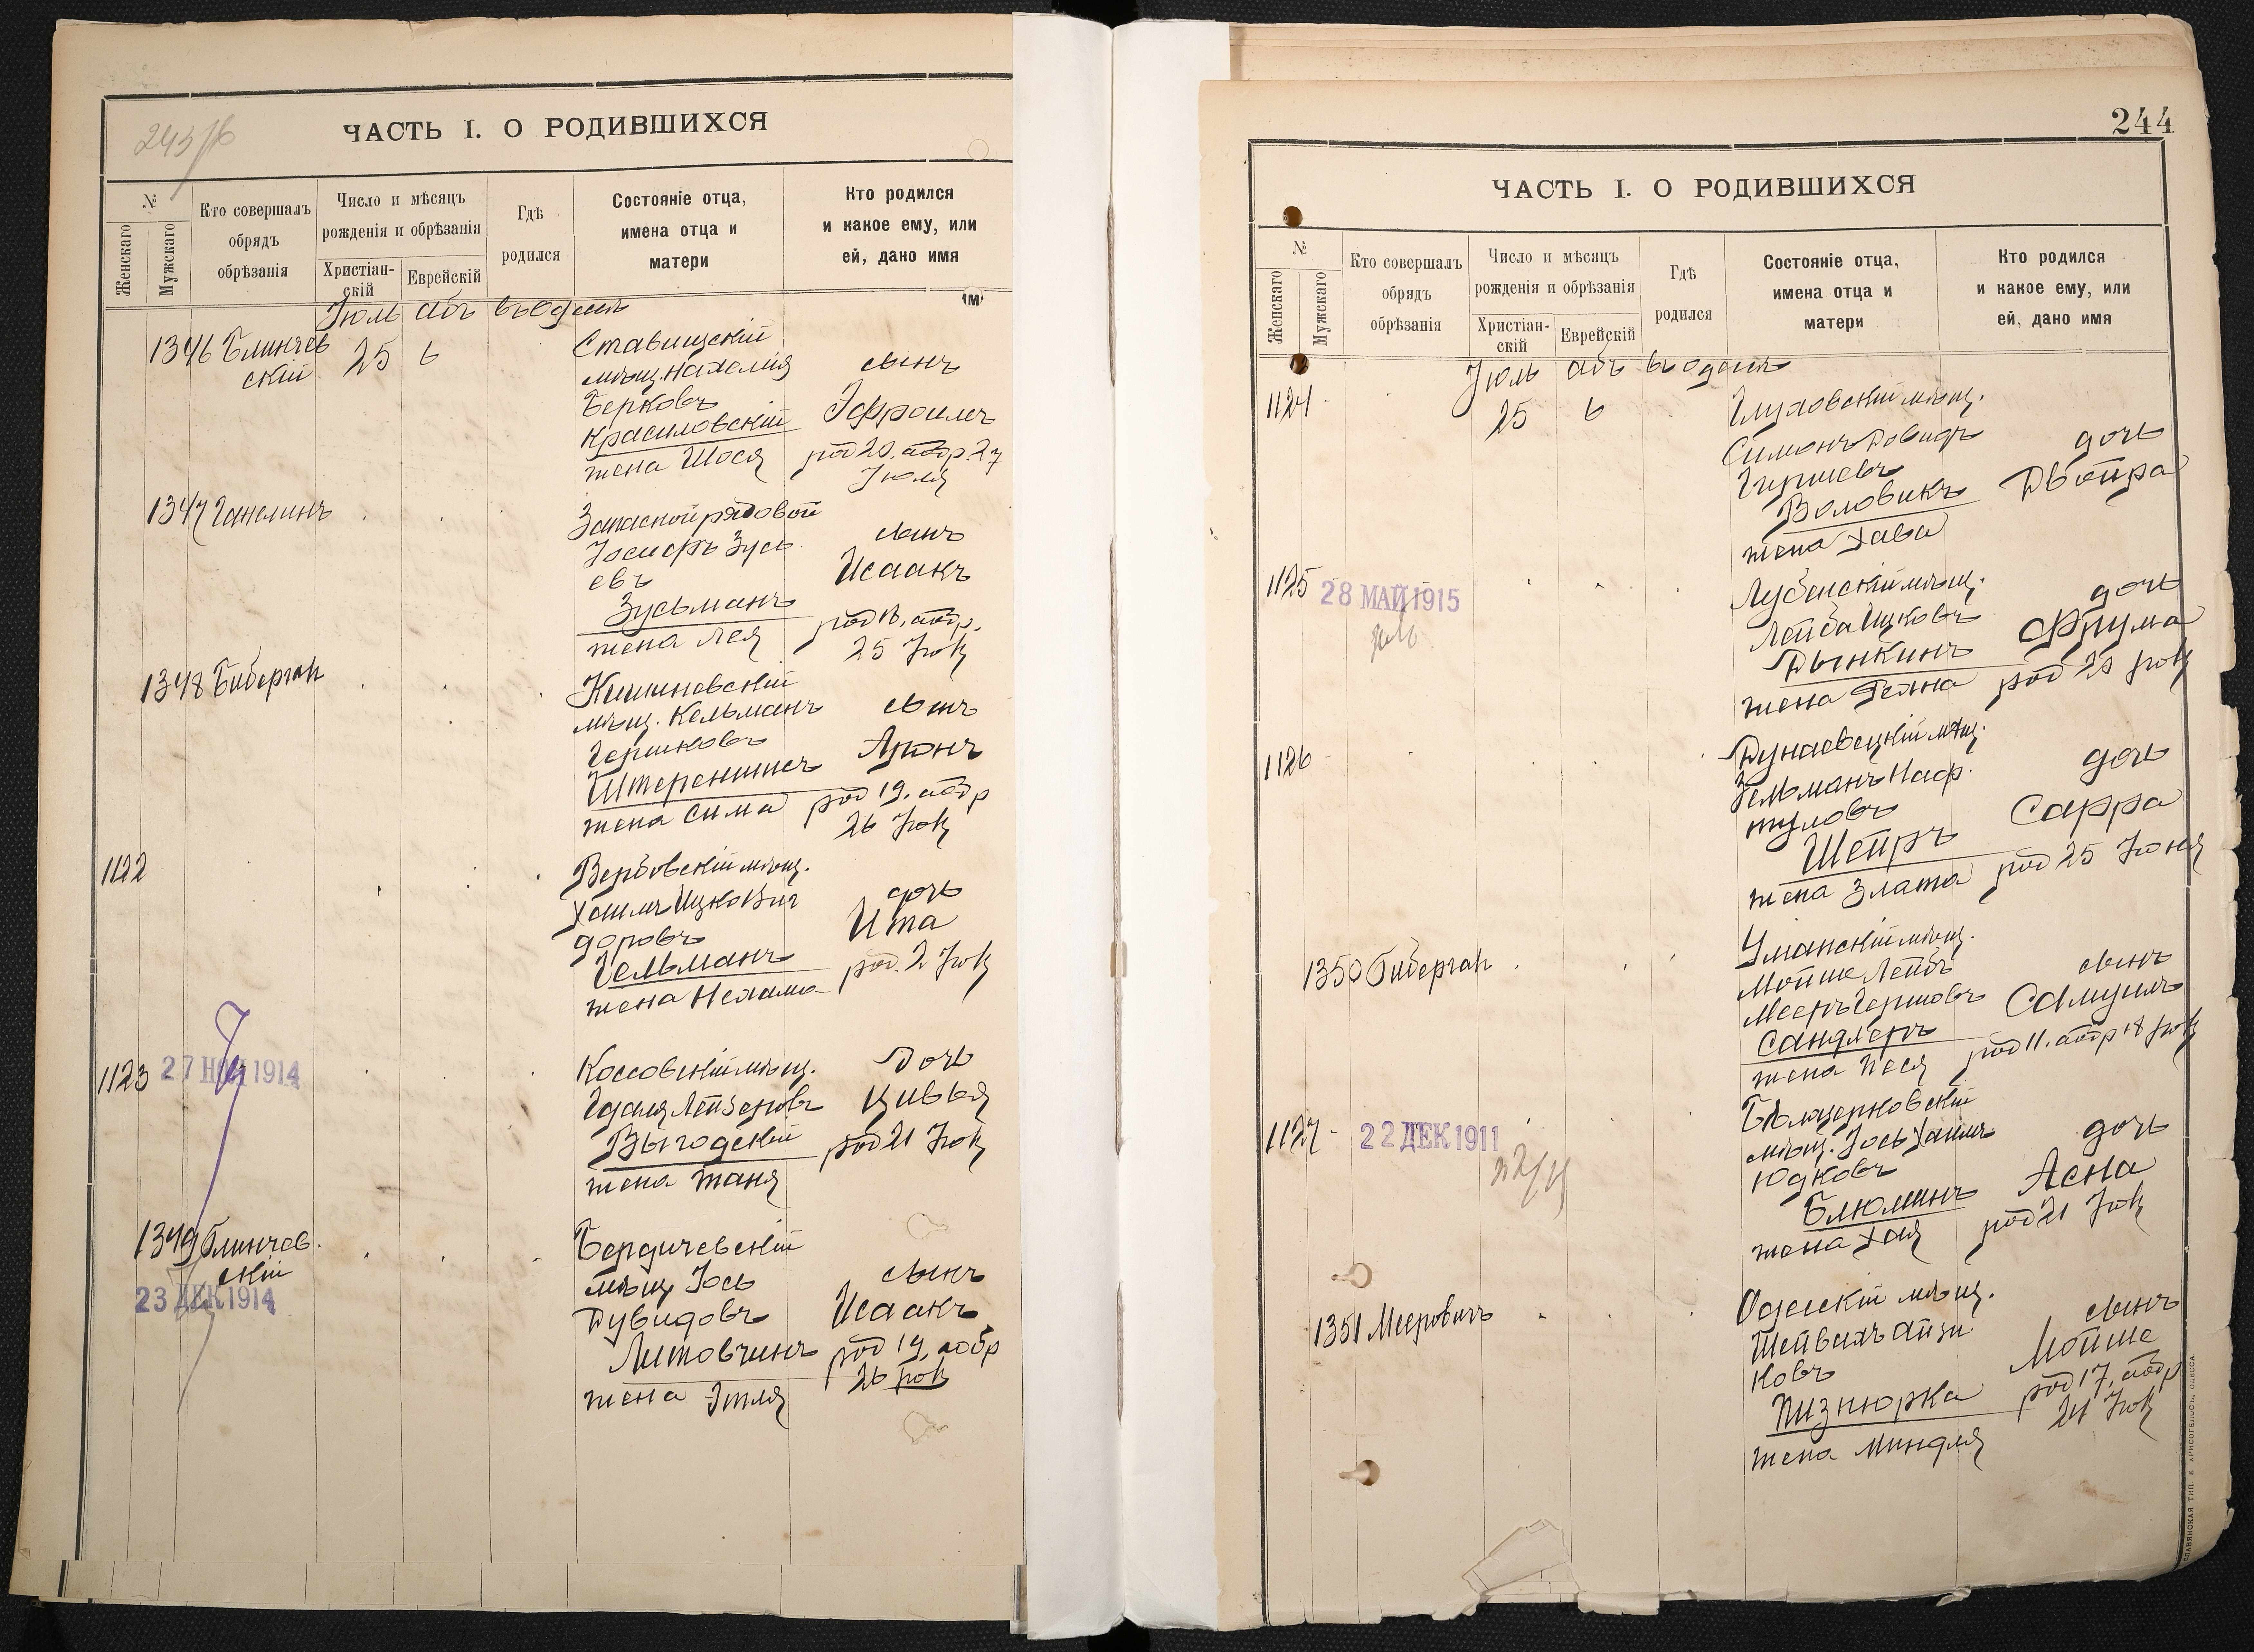 243/б
ЧАСТЬ I. О РОДИВШИХСЯ
№
Женскаго
Мужскаго
Кто совершалъ
обрядъ
обрѣзанія
Число и мѣсяцъ
рожденія и обрѣзанія
Христіан-
скій
Еврейскій
Гдѣ
родился
Состояніе отца,
имена отца и
матери
Кто родился
и какое ему, или
ей, дано имя
Іюль Абъ въ Одессѣ
1346 Блинчев
скій
25 6
Ставищскій
мѣщ. Нахамія
Берковъ
Красиловскій
жена Шося
сынъ
Эфроимъ
род 20, обр. 27
Іюля
1347 Ганелинъ
Запасной рядовой
Іосифъ Зусь
евъ
Зусьманъ
жена Лея
сынъ
Исаакъ
род 18, обр.
25 Іюл
1348 Биберган
Кишиневскій
мѣщ. Кельманъ
Гершковъ
Штереншисъ
жена Сима
сынъ
Аронъ
род 19, обр
26 Іюл
1122
Вербовскій мѣщ.
Хаимъ Ицко Виг
доровъ
Гельманъ
жена Нехама
дочь
Ита
род. 2 Іюл
1123
27 НОЯ 1914
Коссовскій мѣщ.
Гдаля Лейзеровъ
Выгодскій
жена Таня
дочь
Цивья
род 21 Іюл
1349 Блинчев.
скій
23 ДЕК 1914
Бердичевскій
мѣщ Іось
Дувидовъ
Литовчинъ
жена Этля
сынъ
Исаакъ
род 19, обр
26 Іюл
244
ЧАСТЬ I. О РОДИВШИХСЯ
№
Женскаго
Мужскаго
Кто совершалъ
обрядъ
обрѣзанія
Число и мѣсяцъ
рожденія и обрѣзанія
Христіан-
скій
Еврейскій
Гдѣ
родился
Состояніе отца,
имена отца и
матери
Кто родился
и какое ему, или
ей, дано имя
Іюль Абъ въ Одессѣ
1124
25 6
Глуховскій мѣщ.
Симонъ Довидъ
Гершевъ
Воловикъ
жена Хава
дочь
Двойра
1125
28 МАЙ 1915
Лубенскій мѣщ.
Лейба Ицковъ
Дынкинъ
жена
дочь
Фрума
род 20 Іюл
1126
Дунаевецкій мѣщ.
Зельманъ Наф
туловъ
Шейръ
жена Злата
дочь
Сарра
род 25 Іюня
1350 Биберган
Уманскій мѣщ.
Мойше Лейбъ
Мееръ Гершовъ
Сандлеръ
жена Песя
сынъ
Самуилъ
род 11, обр 18 Іюл
1127
22 ДЕК 1911
Бѣлоцерковскій
мѣщ. Іось Хаимъ
Юдковъ
Блюминъ
жена Хая
дочь
Асна
род 21 Іюл
1351 Мееровичъ
Одесскій мѣщ.
Шейвахъ Айзи
ковъ
Пизнюрка
жена Миндля
сынъ
Мойше
род 17, обр
24 Іюл
СЛАВЯНСКАЯ ТИП. Е. ХРИСОГЕЛОСЪ, ОДЕССА